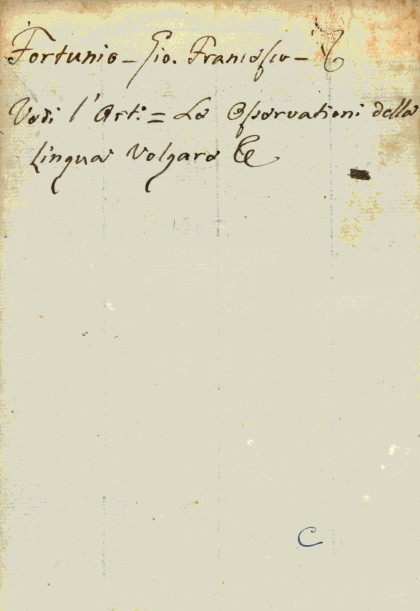 Fortunio - Gio. Francesco - &
Vedi l'Art.° = Le Osservationi della
Lingua Volgare &
C